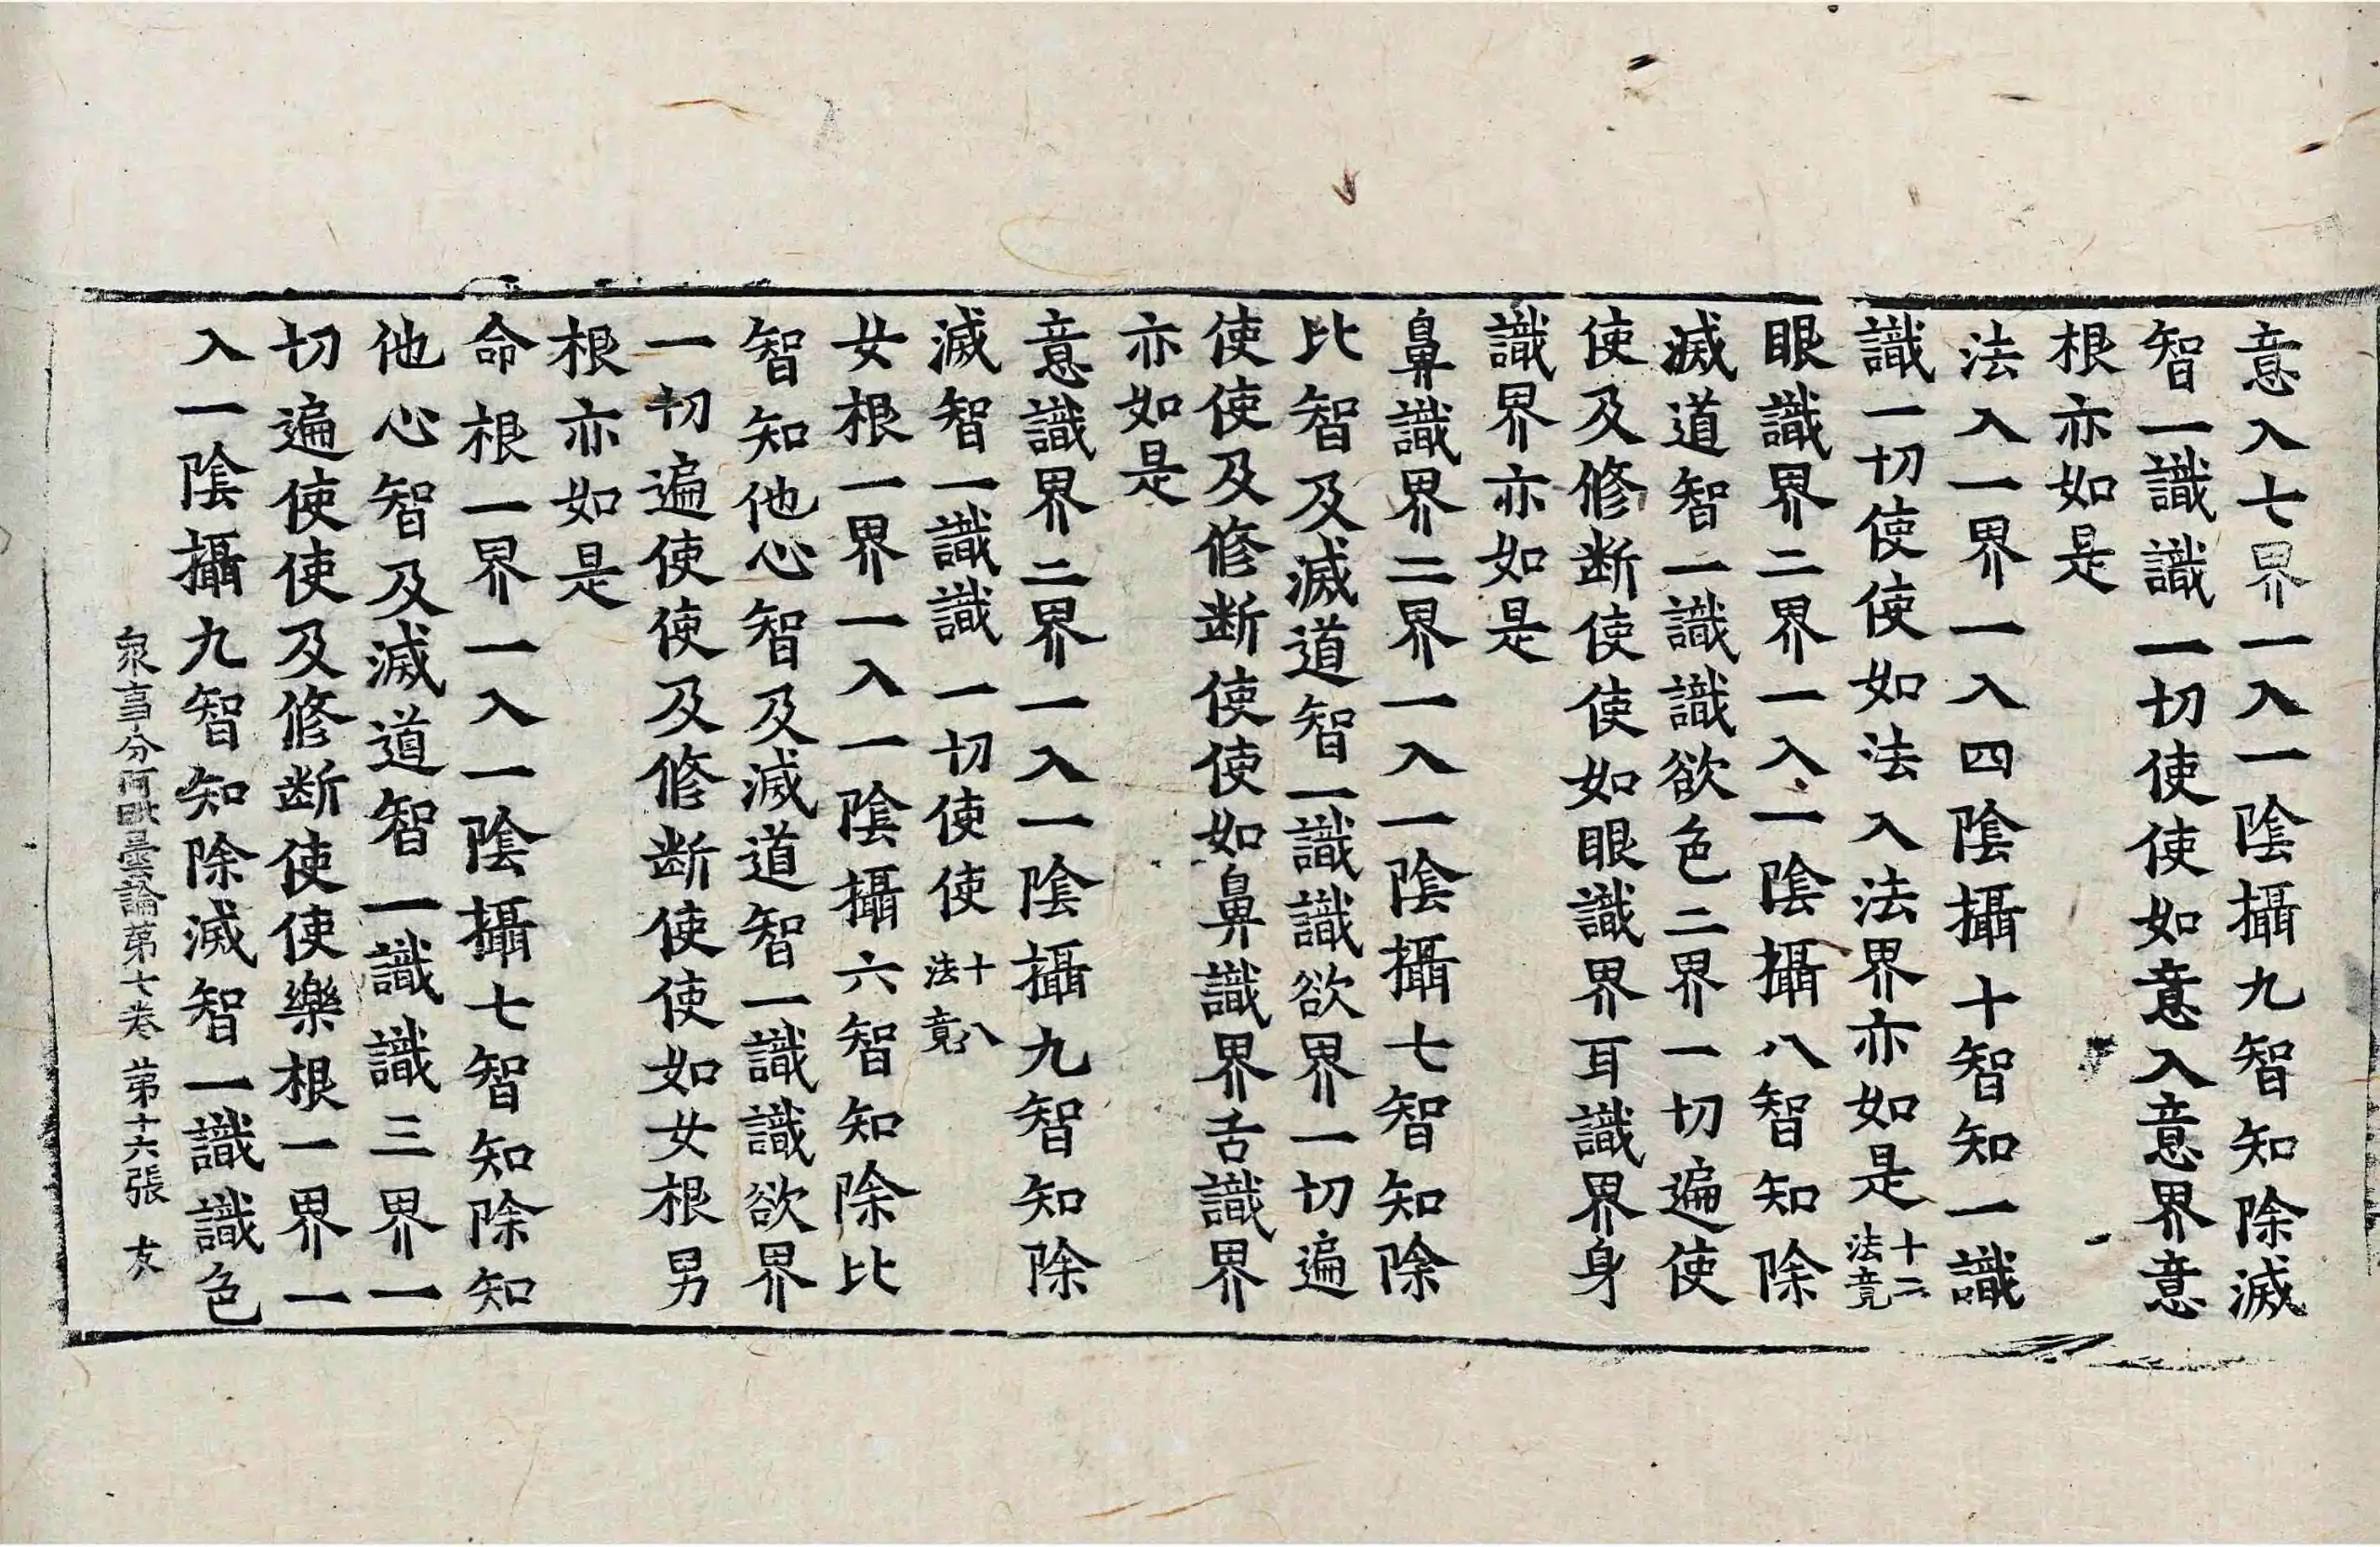 意入七界一入一陰攝九智知除滅
智一識識一切使使如意入意界意
根亦如是
法入一界一入四陰攝十智知一識
識一切使使如法入法界亦如是十二法竟
眼識界二界一入一陰攝八智知除
滅道智一識識欲色二界一切遍使
使及修断使使如眼識界耳識界身
識界亦如是
鼻識界二界一入一陰攝七智知除
比智及滅道智一識識欲界一切遍
使使及修断使使如鼻識界舌識界
亦如是
意識界二界一入一陰攝九智知除
滅智一識識一切使使十八法竟
女根一界一入一陰攝六智知除比
智知他心智及滅道智一識識欲界
一切遍使使及修断使使如女根男
根亦如是
命根一界一入一陰攝七智知除知
他心智及滅道智一識識三界一
切遍使使及修断使使樂根一界一
入一陰攝九智知除滅智一識識色
眾事分阿毗曇論第七卷 第十六張 友